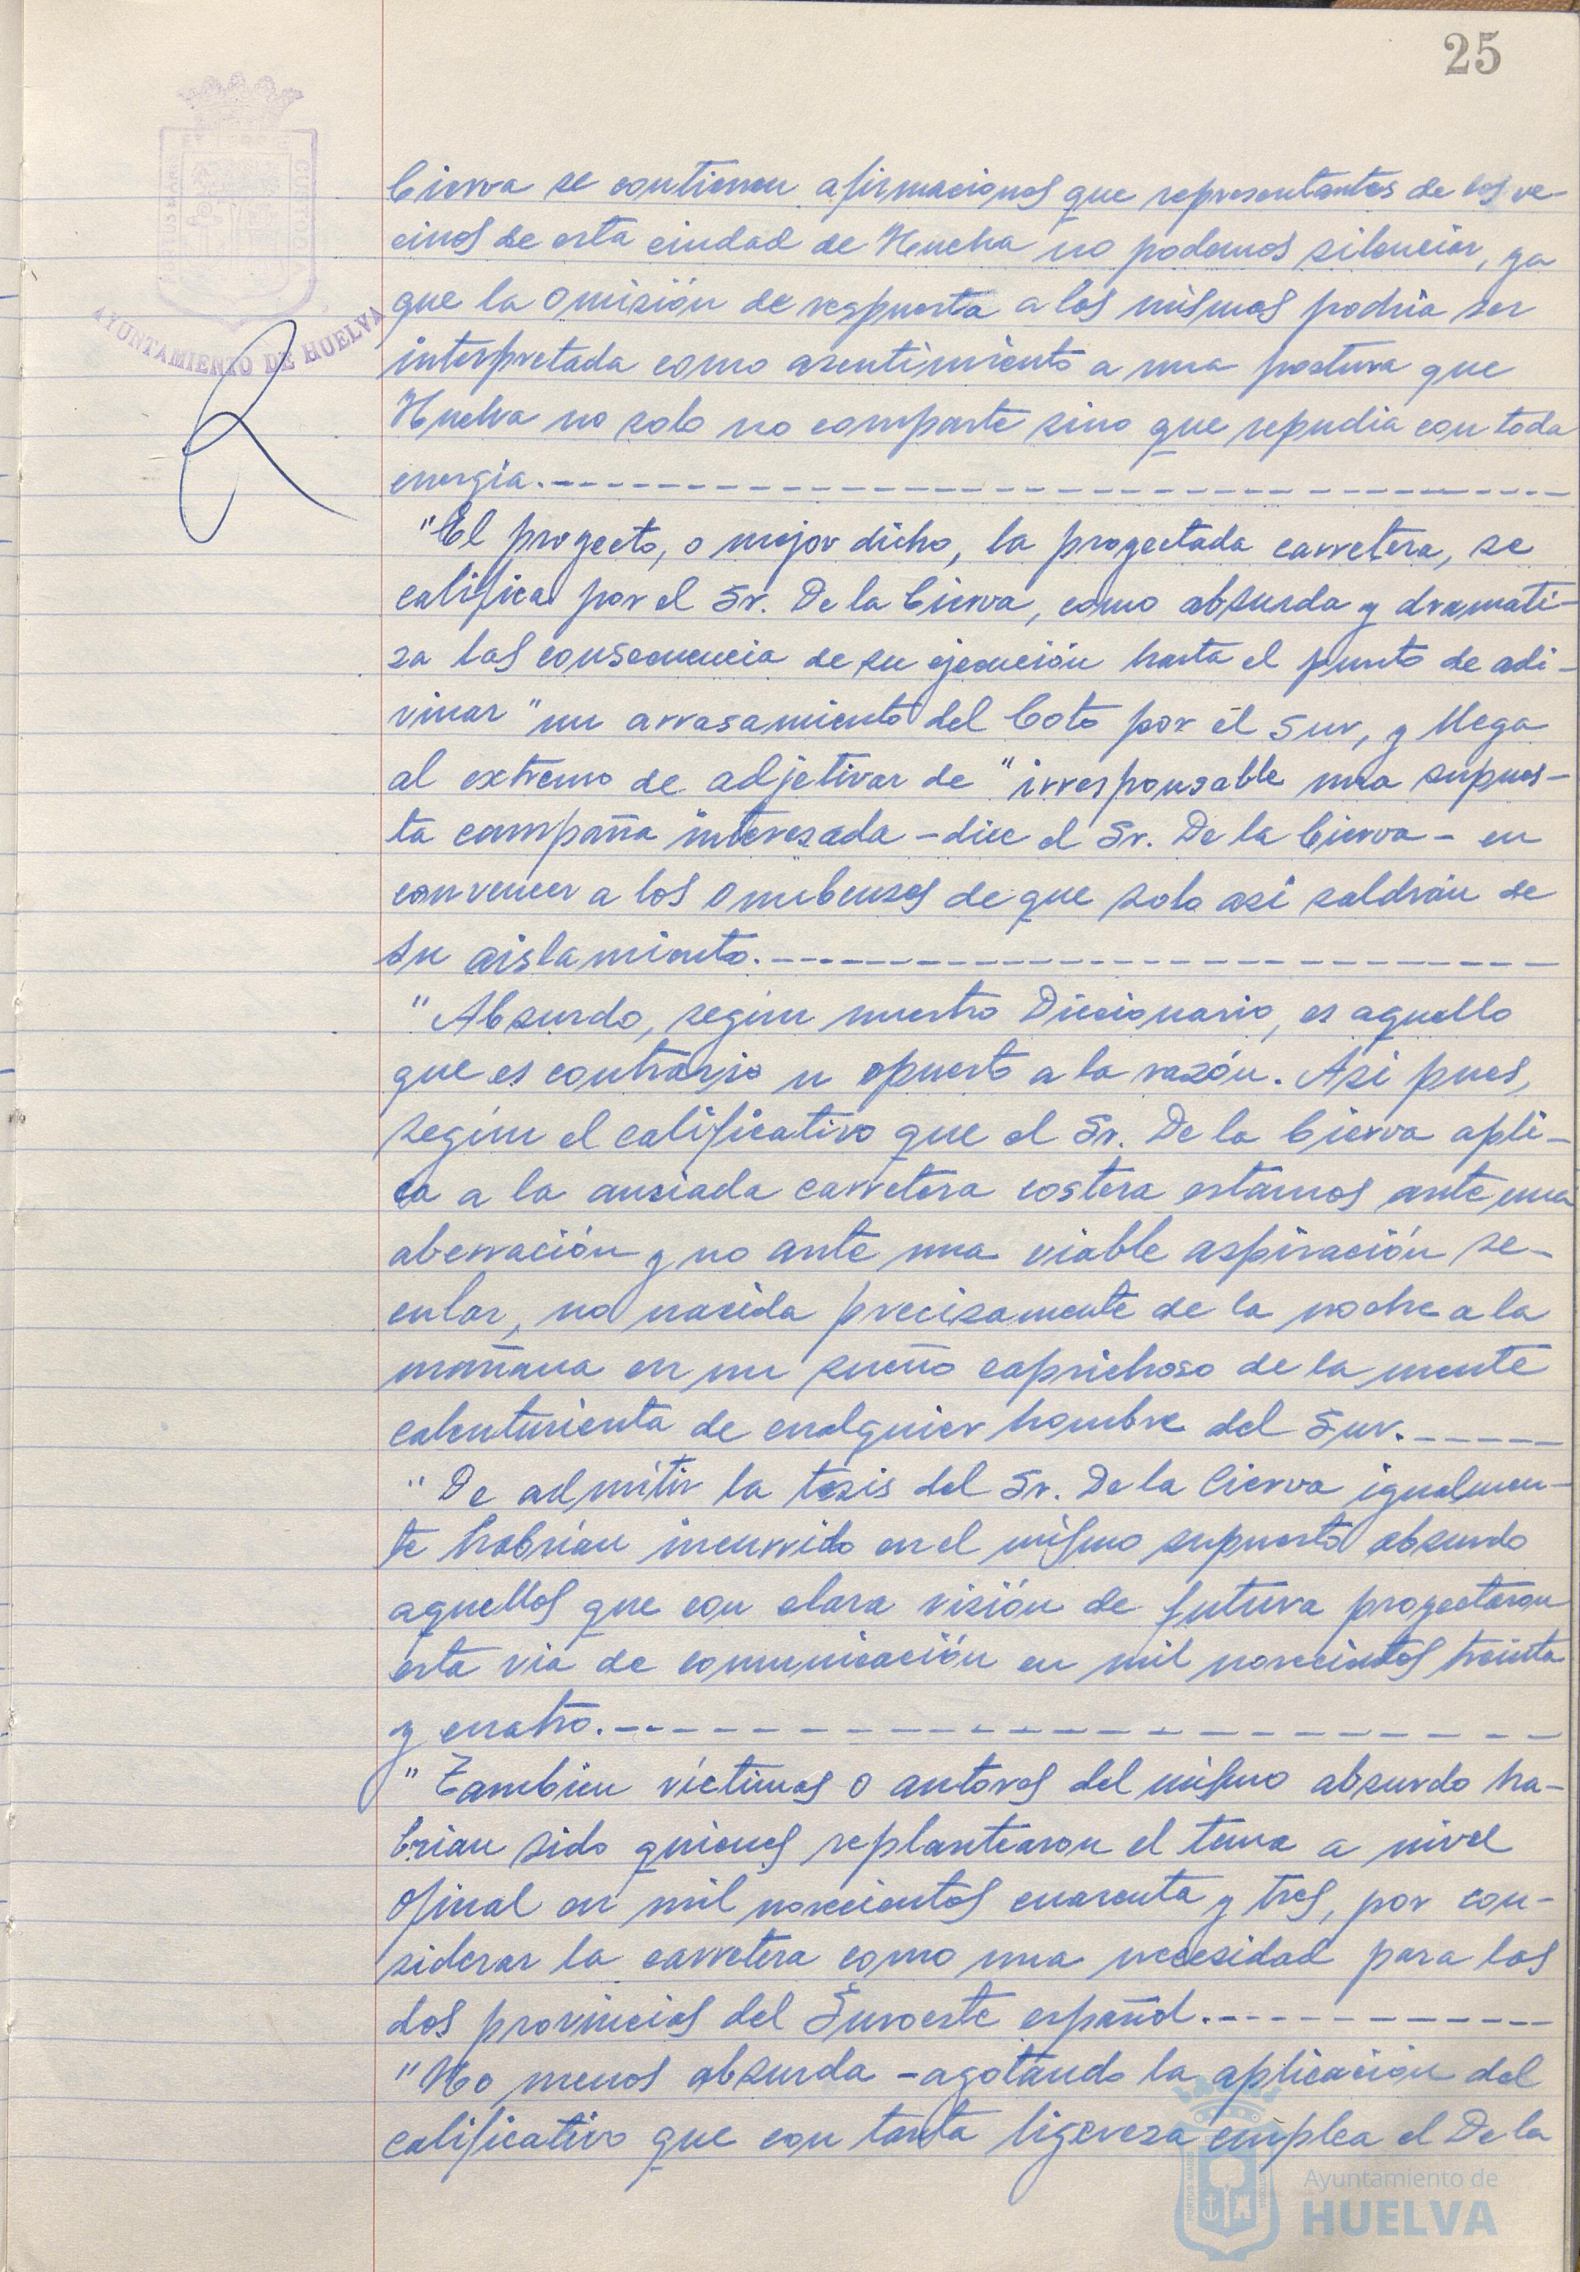 25
AYUNTAMIENTO DE HUELVA
Cierva se contienen afirmaciones que representantes de los ve-
cinos de esta ciudad de Huelva no podemos silenciar, ya
que la omisión de respuesta a los mismos podria ser
interpretada como asentimiento a una postura que
Huelva no solo no comparte sino que repudia con toda
energia.
"El proyecto, o mejor dicho, la proyectada carretera, se
califica por el Sr. De la Cierva, como absurda y dramati-
za las consecuencia de su ejecución hasta el punto de adi-
vinar "un arrasamiento del Coto por el Sur, y llega
al extremo de adjetivar de "irresponsable una supues-
ta campaña interesada - dice el Sr. De la Cierva - en
convencer a los onubenses de que solo asi saldrán de
su aislamiento.
"Absurdo, según nuestro Diccionario, es aquello
que es contrario u opuesto a la razón. Asi pues,
según el calificativo que el Sr. De la Cierva apli-
ca a la ansiada carretera costera estamos ante una
aberración y no ante una viable aspiración se-
cular, no nacida precisamente de la noche a la
mañana en un sueño caprichoso de la mente
calenturienta de cualquier hombre del Sur.
"De admitir la tesis del Sr. De la Cierva igualmen-
te habrian incurrido en el mismo supuesto absurdo
aquellos que con clara visión de futuro proyectaron
esta via de comunicación en mil novecientos treinta
y cuatro.
"Tambien víctimas o autores del mismo absurdo ha-
brian sido quienes replantearon el tema a nivel
oficial en mil novecientos cuarenta y tres, por con-
siderar la carretera como una necesidad para las
dos provincias del Suroeste español.
"No menos absurda - agotando la aplicación del
calificativo que con tanta ligereza emplea el De la
Ayuntamiento de
HUELVA